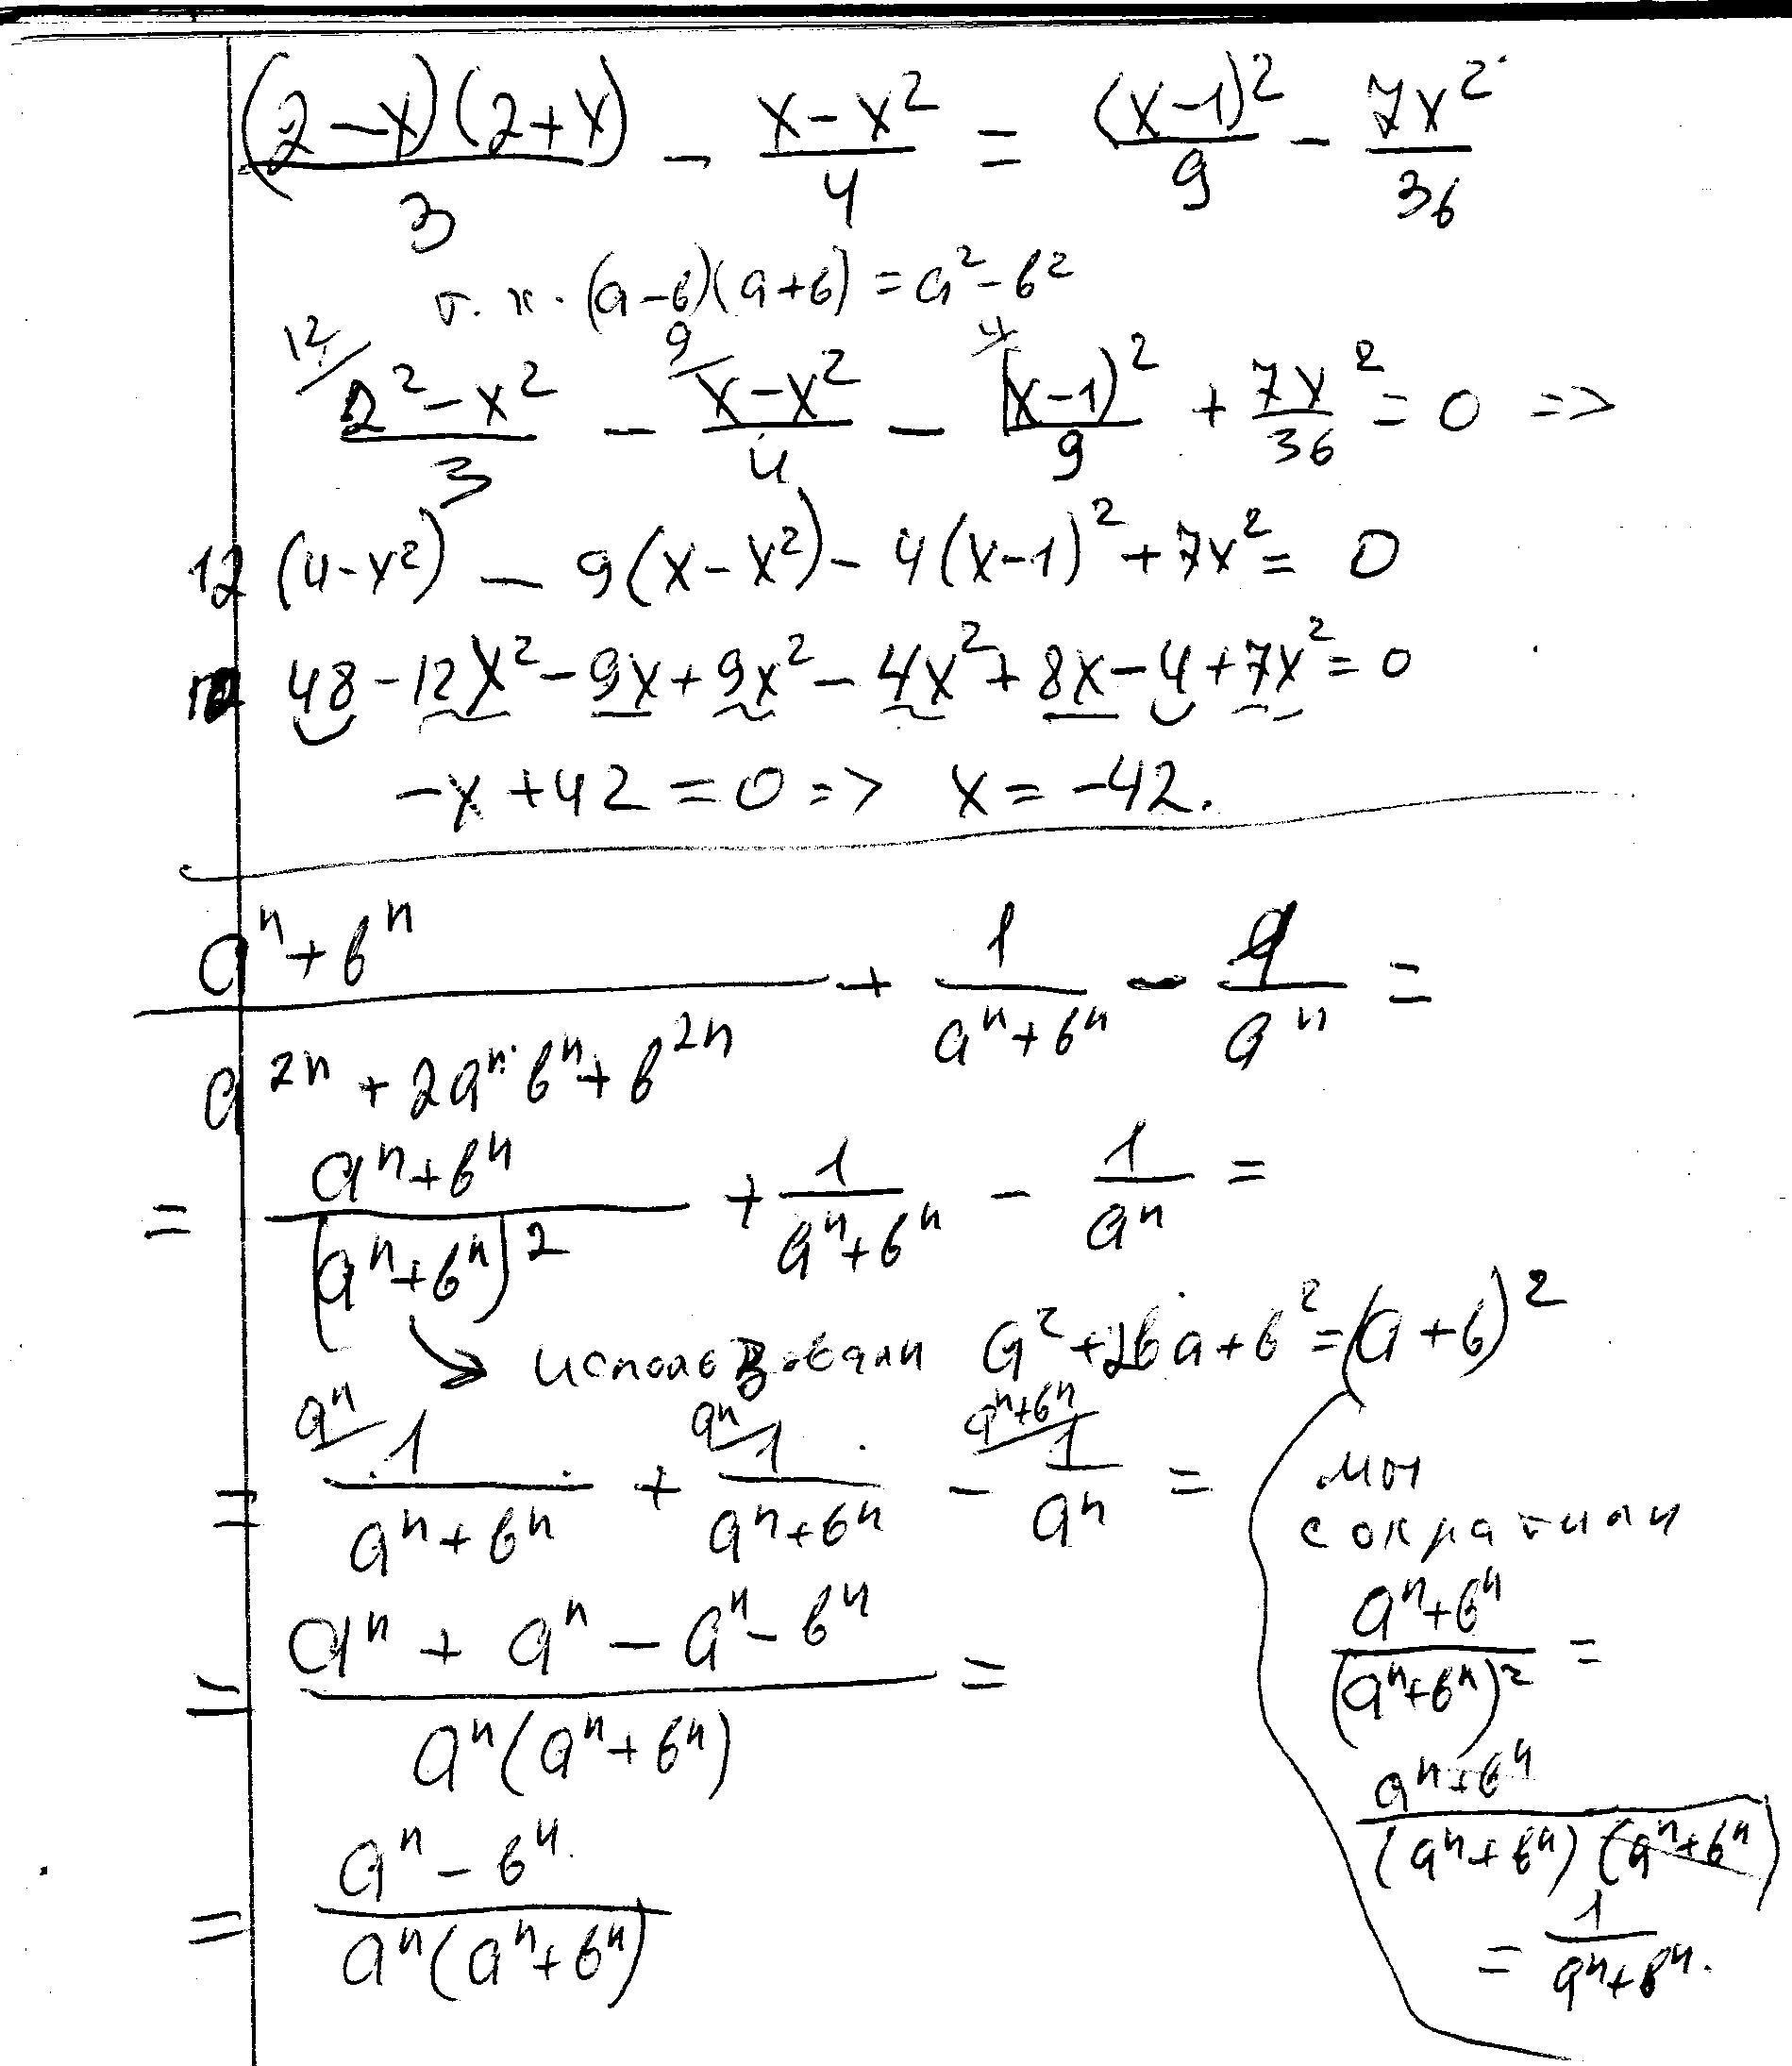 (2-x)(2+x)/3 - x-x²/4 = (x-1)²/9 - 7x²/36
т.к. (a-b)(a+b) = a²-b²
12/ 2²-x²/3 - 9/ x-x²/4 - 4/ (x-1)²/9 + 7x²/36 = 0 =>
12(4-x²) - 9(x-x²) - 4(x-1)² + 7x² = 0
48 - 12x² - 9x + 9x² - 4x² + 8x - 4 + 7x² = 0
-x + 42 = 0 => x = -42.
aⁿ+bⁿ / a²ⁿ + 2aⁿ·bⁿ + b²ⁿ + 1/aⁿ+bⁿ - 1/aⁿ =
= aⁿ+bⁿ/(aⁿ+bⁿ)² + 1/aⁿ+bⁿ - 1/aⁿ =
→ использовали a²+2ba+b² = (a+b)²
= aⁿ/ 1/aⁿ+bⁿ + aⁿ/ 1/aⁿ+bⁿ - aⁿ+bⁿ/ 1/aⁿ =
= aⁿ + aⁿ - aⁿ - bⁿ / aⁿ(aⁿ+bⁿ) =
= aⁿ - bⁿ / aⁿ(aⁿ+bⁿ)
мы
сократили
aⁿ+bⁿ/(aⁿ+bⁿ)² =
aⁿ+bⁿ/(aⁿ+bⁿ)(aⁿ+bⁿ)
= 1/aⁿ+bⁿ.